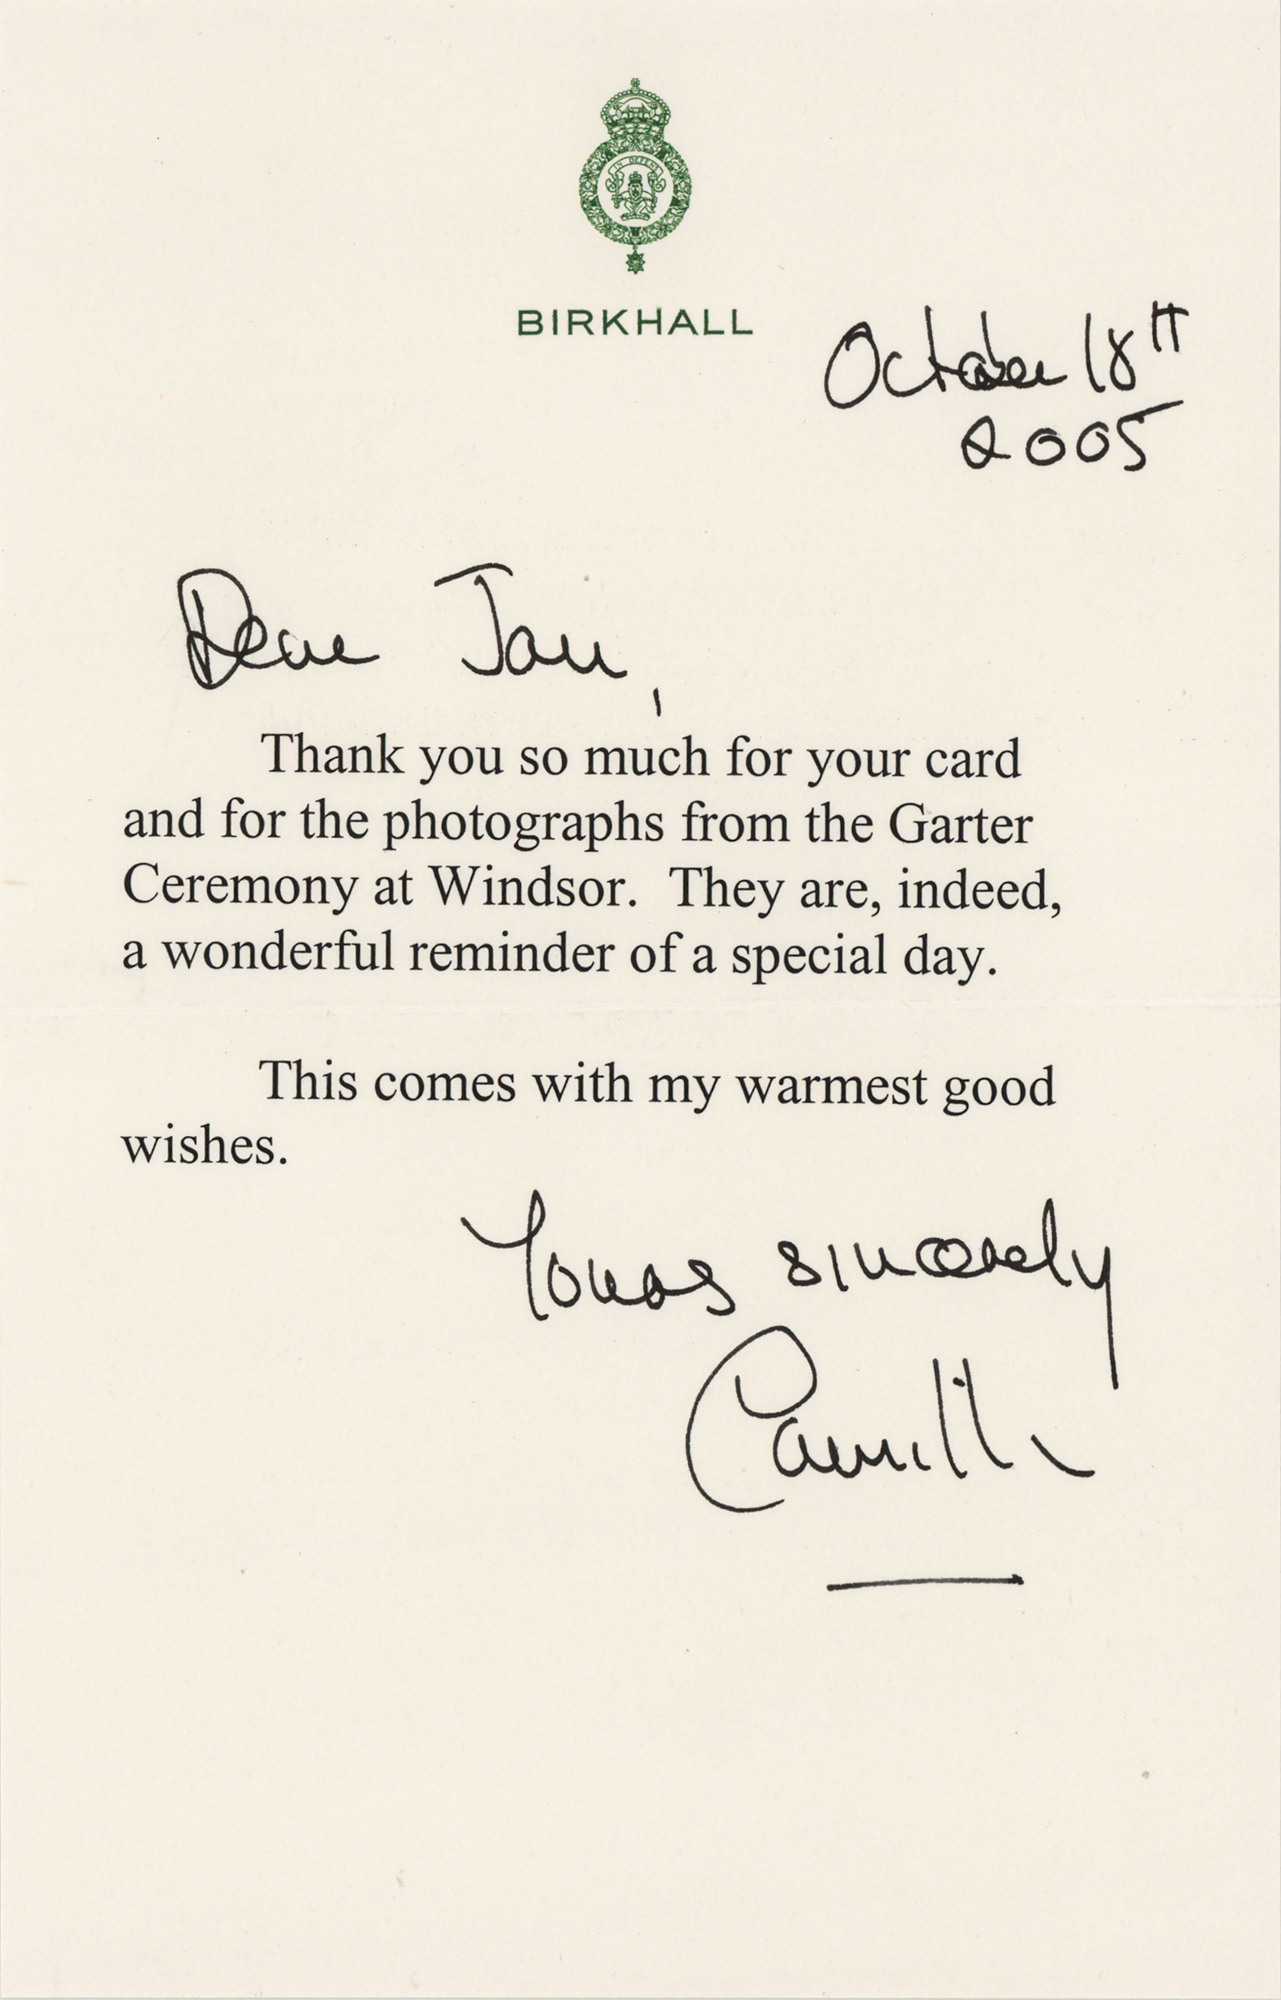 IN DEFENS
BIRKHALL
October 18th
2005
Dear Jan,
Thank you so much for your card
and for the photographs from the Garter
Ceremony at Windsor. They are, indeed,
a wonderful reminder of a special day.
This comes with my warmest good
wishes.
Yours sincerely
Camilla